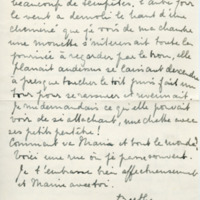 beaucoup de tempêtes, l'autre jour
le vent a démoli le haut d'une
cheminée que je vois de ma chambre
une mouette s'intéressait toute la
journée à regarder par le trou, elle
planait au dessus se laissant descendre
à presque toucher le toit puis fait un
tour pour se remonter et revenait.
Je me demandais ce qu'elle pouvait
voir de si attachant, une chatte avec
ses petits peut être!
Comment va Maria et tout le monde?
Voici une rue où je passe souvent.
Je t'embrasse bien affectueusement
et Maria avec toi.